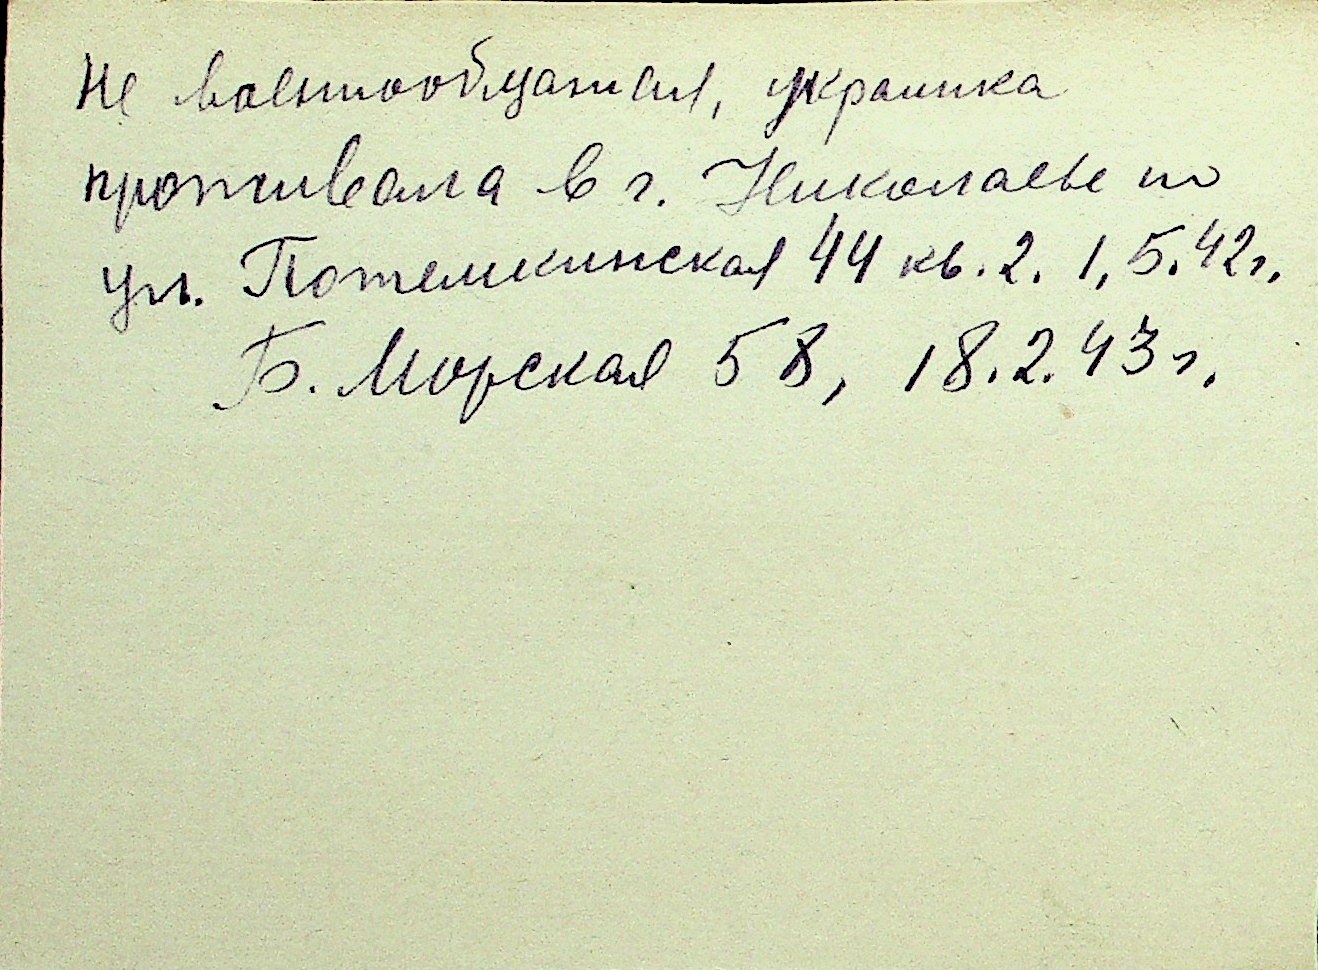 Не военнообязаная, украинка
проживала в г. Николаеве по
ул. Потемкинская 44 кв. 2. 1.5.42г.
Б. Морская 58, 18.2.43г.